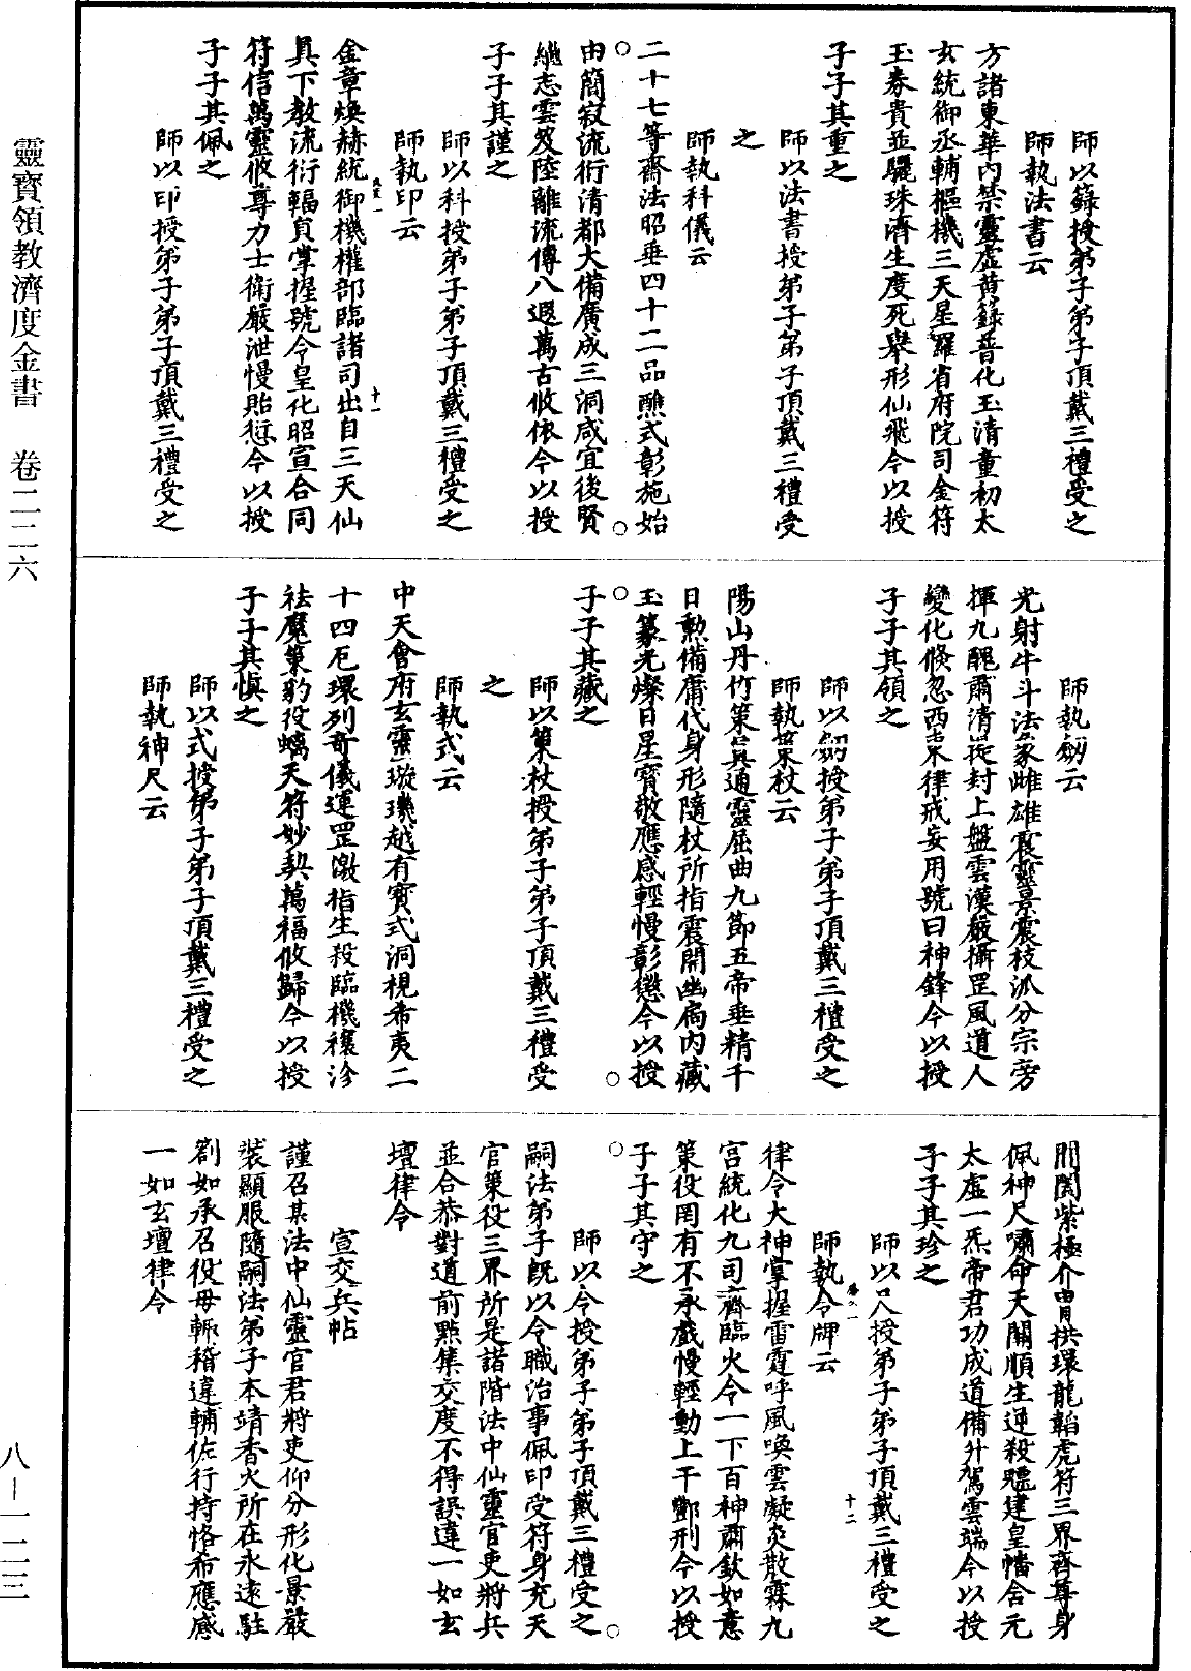 靈寶領教濟度金書　卷二二六
八－一二三
師以籙授弟子弟子頂戴三禮受之
師執法書云
方諸東華內禁靈虛黃籙普化玉清童初太
玄統御丞輔樞機三天星羅省府院司金符
玉券貴並驪珠濟生度死舉形仙飛今以授
子子其重之
師以法書授弟子弟子頂戴三禮受
之
師執科儀云
二十七等齋法昭垂四十二品醮式彰施始
由簡寂流衍清都大備廣成三洞咸宜後賢
繼志雲笈陸離流傳八遐萬古攸依今以授
子子其謹之
師以科授弟子弟子頂戴三禮受之
師執印云
十一
金章煥赫統御機權部臨諸司出自三天仙
具下教流衍輻員掌握號令皇化昭宣合同
符信萬靈攸尊力士衛嚴泄慢貽愆今以授
子子其佩之
師以印授弟子弟子頂戴三禮受之
師執劒云
光射牛斗法象雌雄震靈景震枝派分宗旁
揮九醜肅清崧封上盤雲漢嚴攝罡風道人
變化倏忽西東律戒妄用號曰神鋒今以授
子子其領之
師以劒授弟子弟子頂戴三禮受之
師執策杖云
陽山丹竹策眞通靈屈曲九節五帝垂精千
日勲備庸代身形隨杖所指震開幽扃內藏
玉篆光燦日星寶敬應感輕慢彰懲今以授
子子其藏之
師以策杖授弟子弟子頂戴三禮受
之
師執式云
中天會府玄靈璇璣越有寶式洞視希夷二
十四卮環列奇儀運罡激指生殺臨機禳沴
祛魔策豹役螭天符妙契萬福攸歸今以授
子子其慎之
師以式授弟子弟子頂戴三禮受之
師執神尺云
開闢紫極介胄拱環龍韜虎符三界齊尊身
佩神尺嘯命天關順生逆殺驄建皇幡含元
太虛一炁帝君功成道備升駕雲端今以授
子子其珍之
師以尺授弟子弟子頂戴三禮受之
師執令牌云
十二
律令大神掌握雷霆呼風喚雲凝炎散霖九
宮統化九司齊臨火令一下百神肅欽如意
策役罔有不承戲慢輕動上干酆刑今以授
子子其守之
師以令授弟子弟子頂戴三禮受之
嗣法弟子旣以今職治事佩印受符身充天
官策役三界所是諸階法中仙靈官吏將兵
並合恭對道前點集交度不得誤違一如玄
壇律令
宣交兵帖
謹召某法中仙靈官君將吏仰分形化景嚴
裝顯服隨嗣法弟子本靖香火所在永遠駐
劄如承召役毋輒稽違輔佐行持恪希應感
一如玄壇律令